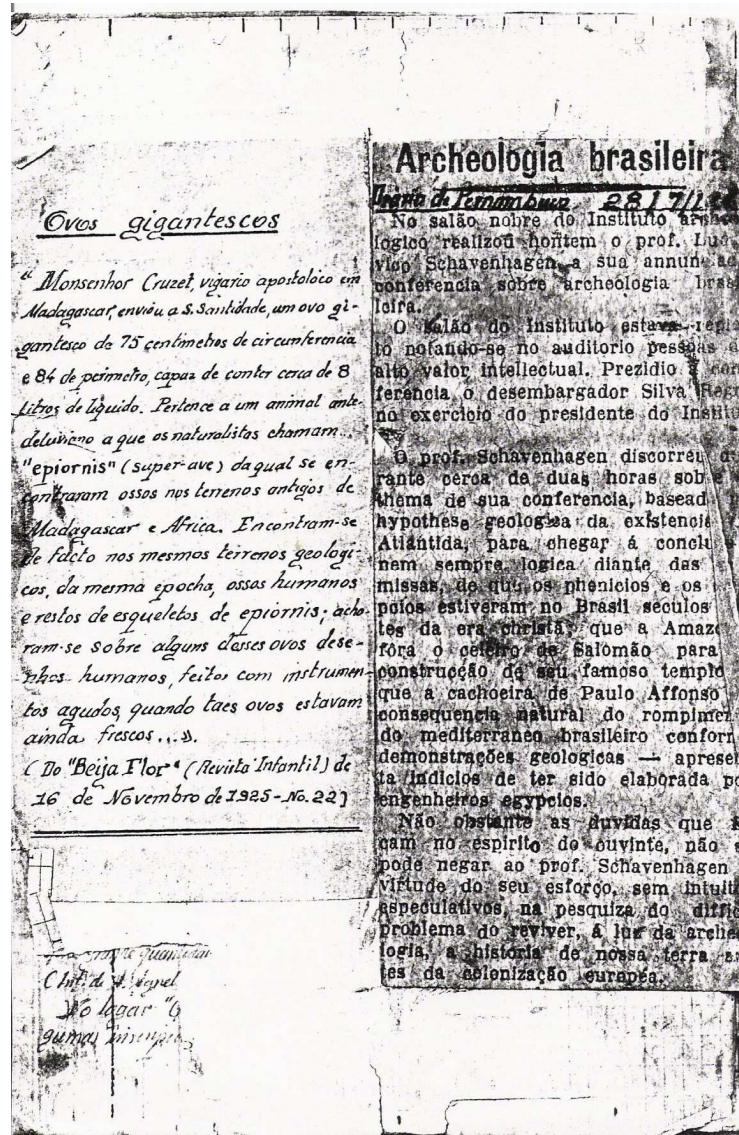 Ovos gigantescos
" Monsenhor Cruzet, vigario apostoloco em
Madagascar, enviou a S. Santidade, um ovo gi-
gantesco de 75 centimetros de circunferencia
e 84 de perimetro, capaz de conter cerca de 8
litros de liquido. Pertence a um animal ante-
deluviano a que os naturalistas chamam...
"epiornis" (super-ave) da qual se en-
contraram ossos nos terrenos antigos de
Madagascar e Africa. Encontram-se
de facto nos mesmos terrenos geologi-
cos, da mesma epocha, ossos humanos
e restos de esqueletos de epiornis; acha-
ram-se sobre alguns desses ovos dese-
nhos humanos, feitos com instrumen-
tos agudos, quando taes ovos estavam
ainda frescos...».
( Do "Beija Flor" (Revista Infantil) de
16 de Novembro de 1925 - No. 22)
No logar
Archeologia brasileira
Diario de Pernambuco 28/7/
No salão nobre do Instituto archeo
logico realizou hontem o prof. Lud
vico Schavenhagen a sua annun
conferencia sobre archeologia brasi
leira.
O salão do Instituto estava reple
to notando-se no auditorio pessoas d
alto valor intellectual. Prezidio a con
ferencia o desembargador Silva Rego
no exercicio do presidente do Institu
O prof. Schavenhagen discorreu du
rante cerca de duas horas sob
thema de sua conferencia, basead
hypothese geologica da existencia
Atlântida, para chegar á conclu
nem sempre logica diante das
missas, de que os phenicios e os
pcios estiveram no Brasil seculos
tes da era christã; que a Amaz
fôra o celeiro de Salomão para
construcção de seu famoso templo
que a cachoeira de Paulo Affonso
consequencia natural do rompimen
do mediterraneo brasileiro conform
demonstrações geologicas — apresen
ta indicios de ter sido elaborada po
engenheiros egypcios.
Não obstante as duvidas que
cam no espirito do ouvinte, não
pode negar ao prof. Schavenhagen
virtude do seu esforço, sem intuito
especulativos, na pesquiza do diffic
problema do reviver, á luz da archeo
logia, a historia de nossa terra an
tes da colonização européa.